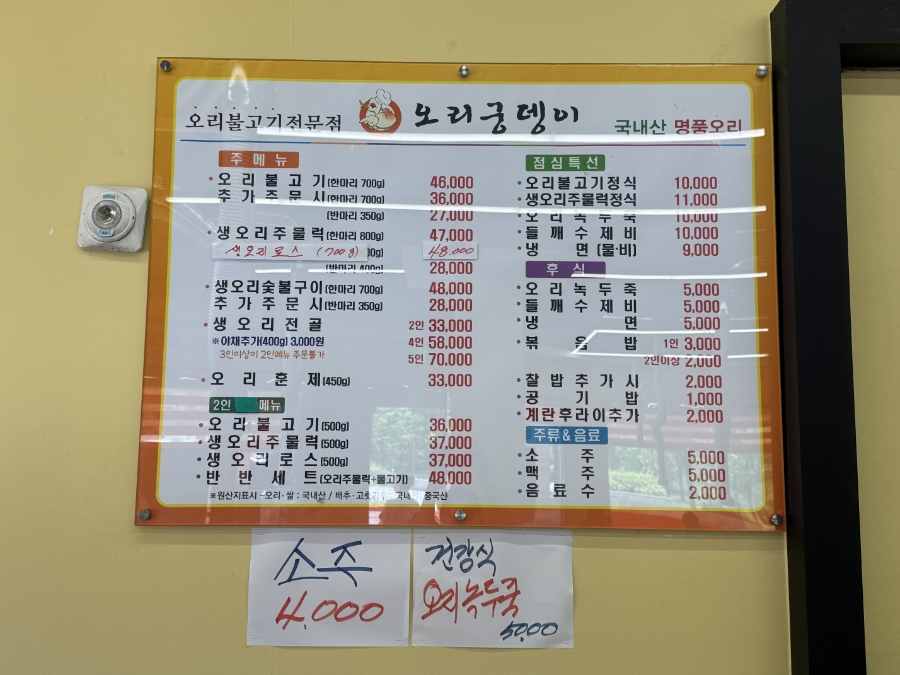 오리불고기전문점 오리궁뎅이 국내산 명품오리
주 메뉴
• 오리불고기(한마리 700g) 46,000
추가주문시(한마리 700g) 36,000
(반마리 350g) 27,000
• 생오리주물럭(한마리 800g) 47,000
생오리로스 (700g) 48.000
(반마리 400g) 28,000
• 생오리숯불구이(한마리 700g) 48,000
추가주문시(반마리 350g) 28,000
• 생오리전골 2인 33,000
※야채추가(400g) 3,000원 4인 58,000
3인이상이 2인메뉴 주문불가 5인 70,000
• 오리훈제(450g) 33,000
2인 메뉴
• 오리불고기(500g) 36,000
• 생오리주물럭(500g) 37,000
• 생오리로스(500g) 37,000
• 반반세트(오리주물럭+불고기) 48,000
※원산지표시 -오리·쌀 : 국내산 / 배추·고춧가루 국내산 중국산
점심특선
• 오리불고기정식 10,000
• 생오리주물럭정식 11,000
• 오리녹두죽 10,000
• 들깨수제비 10,000
• 냉면(물·비) 9,000
후식
• 오리녹두죽 5,000
• 들깨수제비 5,000
• 냉면 5,000
• 볶음밥 1인 3,000
2인이상 2,000
• 찰밥추가시 2,000
• 공기밥 1,000
• 계란후라이추가 2,000
주류&음료
• 소주 5,000
• 맥주 5,000
• 음료수 2,000
소주
4.000
건강식
오리녹두죽
5000